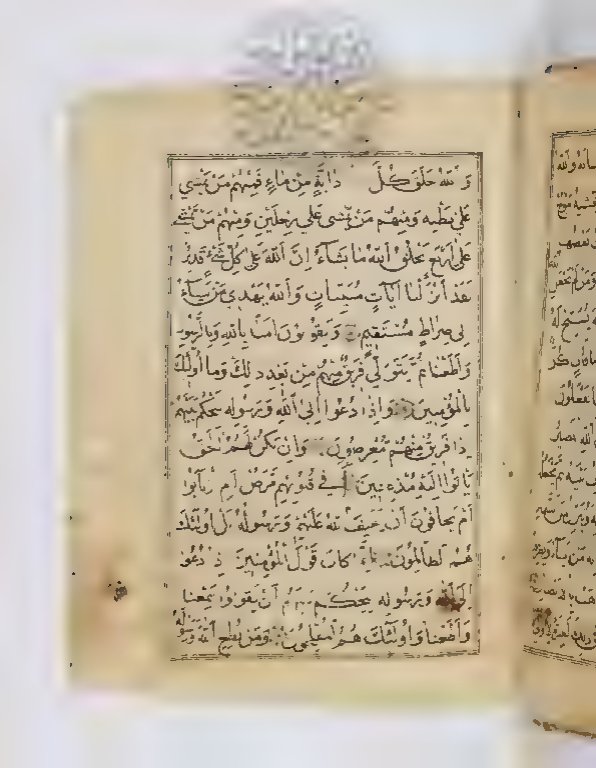 وَاللّٰهُ خَلَقَ كُلَّ دَابَّةٍ مِنْ مَاءٍ فَمِنْهُمْ مَنْ يَمْشِي
عَلَى بَطْنِهِ وَمِنْهُمْ مَنْ يَمْشِي عَلَى رِجْلَيْنِ وَمِنْهُمْ مَنْ يَمْشِي
عَلَى أَرْبَعٍ يَخْلُقُ اللّٰهُ مَا يَشَاءُ إِنَّ اللّٰهَ عَلَى كُلِّ شَيْءٍ قَدِيرٌ
لَقَدْ أَنْزَلْنَا آيَاتٍ مُبَيِّنَاتٍ وَاللّٰهُ يَهْدِي مَنْ يَشَاءُ
إِلَى صِرَاطٍ مُسْتَقِيمٍ وَيَقُولُونَ آمَنَّا بِاللّٰهِ وَبِالرَّسُولِ
وَأَطَعْنَا ثُمَّ يَتَوَلَّى فَرِيقٌ مِنْهُمْ مِنْ بَعْدِ ذٰلِكَ وَمَا أُولٰئِكَ
بِالْمُؤْمِنِينَ وَإِذَا دُعُوا إِلَى اللّٰهِ وَرَسُولِهِ لِيَحْكُمَ بَيْنَهُمْ
إِذَا فَرِيقٌ مِنْهُمْ مُعْرِضُونَ وَإِنْ يَكُنْ لَهُمُ الْحَقُّ
يَأْتُوا إِلَيْهِ مُذْعِنِينَ أَفِي قُلُوبِهِمْ مَرَضٌ أَمِ ارْتَابُوا
أَمْ يَخَافُونَ أَنْ يَحِيفَ اللّٰهُ عَلَيْهِمْ وَرَسُولُهُ بَلْ أُولٰئِكَ
هُمُ الظَّالِمُونَ إِنَّمَا كَانَ قَوْلَ الْمُؤْمِنِينَ إِذَا دُعُوا
إِلَى اللّٰهِ وَرَسُولِهِ لِيَحْكُمَ بَيْنَهُمْ أَنْ يَقُولُوا سَمِعْنَا
وَأَطَعْنَا وَأُولٰئِكَ هُمُ الْمُفْلِحُونَ وَمَنْ يُطِعِ اللّٰهَ وَرَسُولَهُ